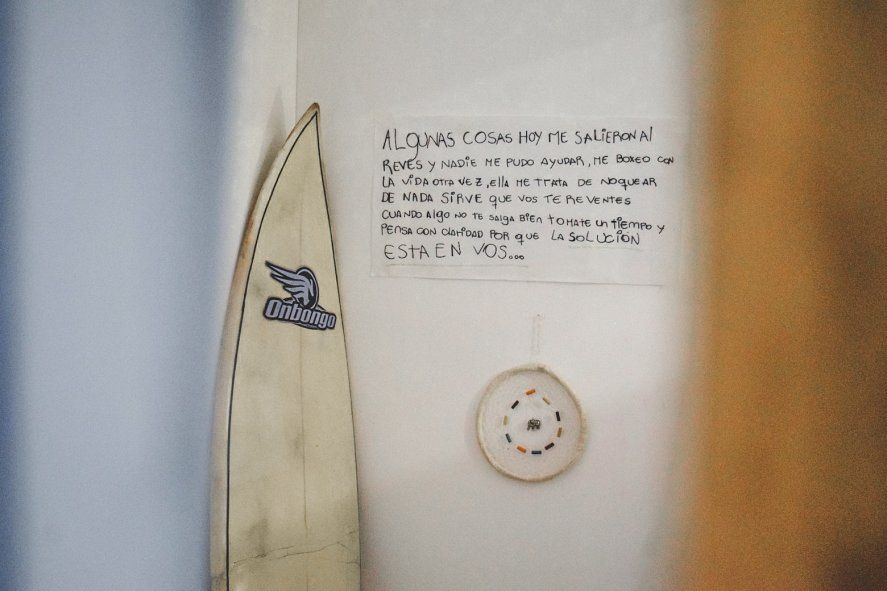 ALGUNAS COSAS HOY ME SALIERON Al
REVES Y NADIE ME PUDO AYUDAR, ME BOXEO CON
LA VIDA OTRA VEZ, Ella ME TRATA DE NOQUEAR
DE NADA SIRVE QUE VOS TE REVIENTES
CUANDO Algo NO TE SALGA BIEN TOMATE UN TIEMPO Y
PENSA CON CLARIDAD POR QUE LA SOLUCION
ESTA EN VOS...
Onbongo